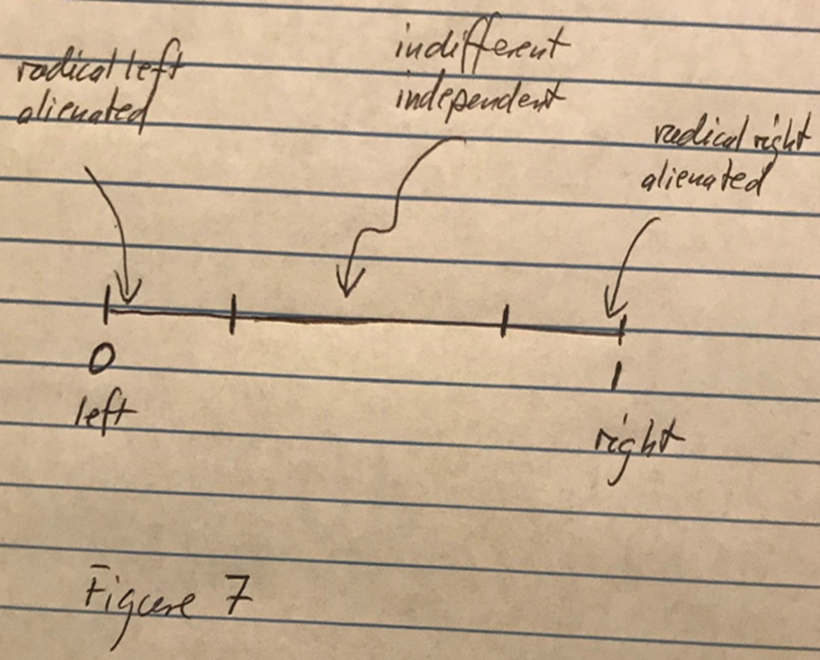 radical left
alienated
indifferent
independent
radical right
alienated
0
1
left
right
Figure 7